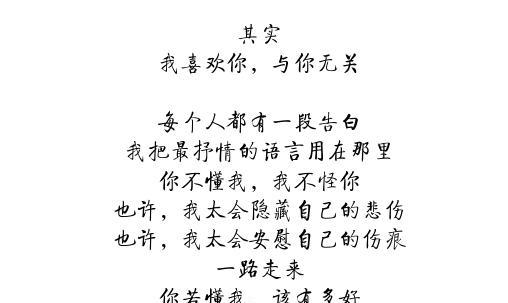 其实
我喜欢你，与你无关
每个人都有一段告白
我把最抒情的语言用在那里
你不懂我，我不怪你
也许，我太会隐藏自己的悲伤
也许，我太会安慰自己的伤痕
一路走来
你若懂我，该有多好